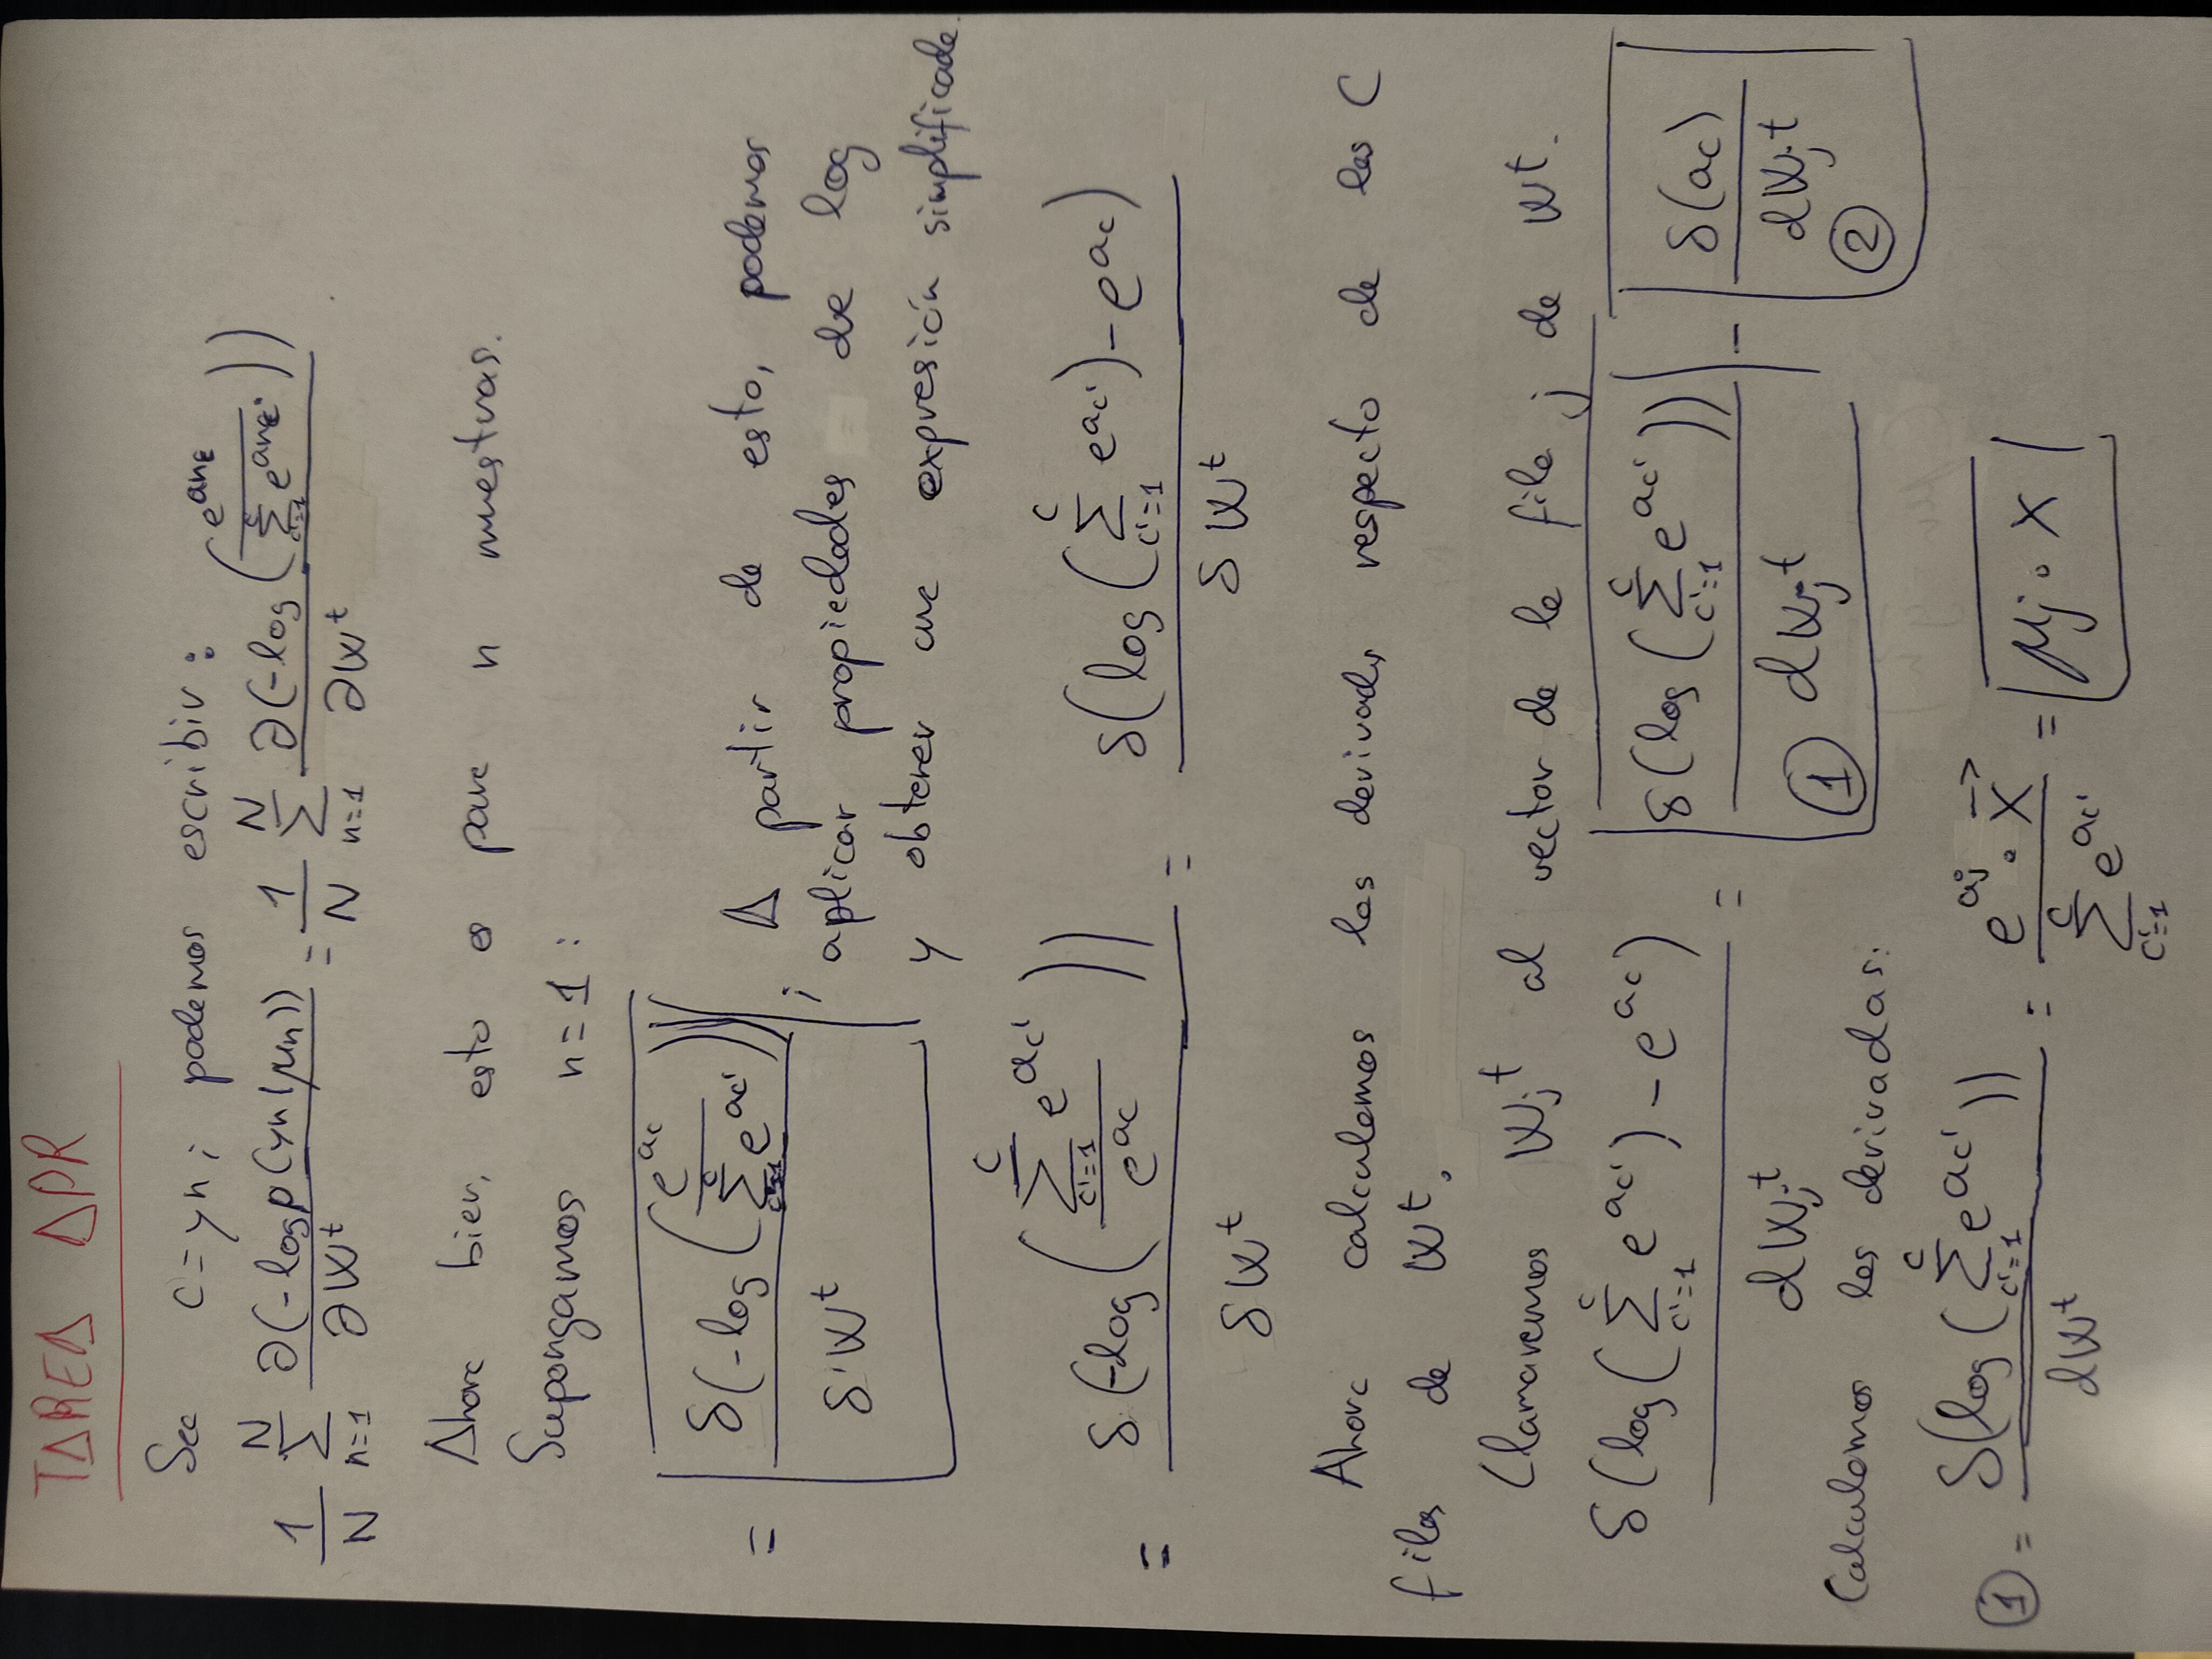 TAREA APR
Sea C=yn; podemos escribir:
1/N ∑_{n=1}^{N} ∂(-log p(yn|μn))/∂W^t = 1/N ∑_{n=1}^{N} ∂(-log(e^{anc}/∑_{c'=1}^{C} e^{anc'}))/∂W^t
Ahora bien, esto es para n muestras.
Supongamos n=1:
= δ(-log(e^{ac}/∑_{c'=1}^{C} e^{ac'}))/δW^t ; A partir de esto, podemos
aplicar propiedades de log
y obtener una expresión simplificada.
= δ(-log(∑_{c'=1}^{C} e^{ac'}/e^{ac}))/δW^t = δ(log(∑_{c'=1}^{C} e^{ac'})-e^{ac})/δW^t
Ahora calculamos las derivadas respecto de las C
filas de W^t.
Llamaremos Wj^t al vector de la fila j de W^t.
δ(log(∑_{c'=1}^{C} e^{ac'})-e^{ac})/dWj^t = δ(log(∑_{c'=1}^{C} e^{ac'}))/dWj^t ① - δ(ac)/dWj^t ②
Calculamos las derivadas:
① = δ(log(∑_{c'=1}^{C} e^{ac'}))/dW^t = e^{aj}·x⃗/∑_{c'=1}^{C} e^{ac'} = μj·x